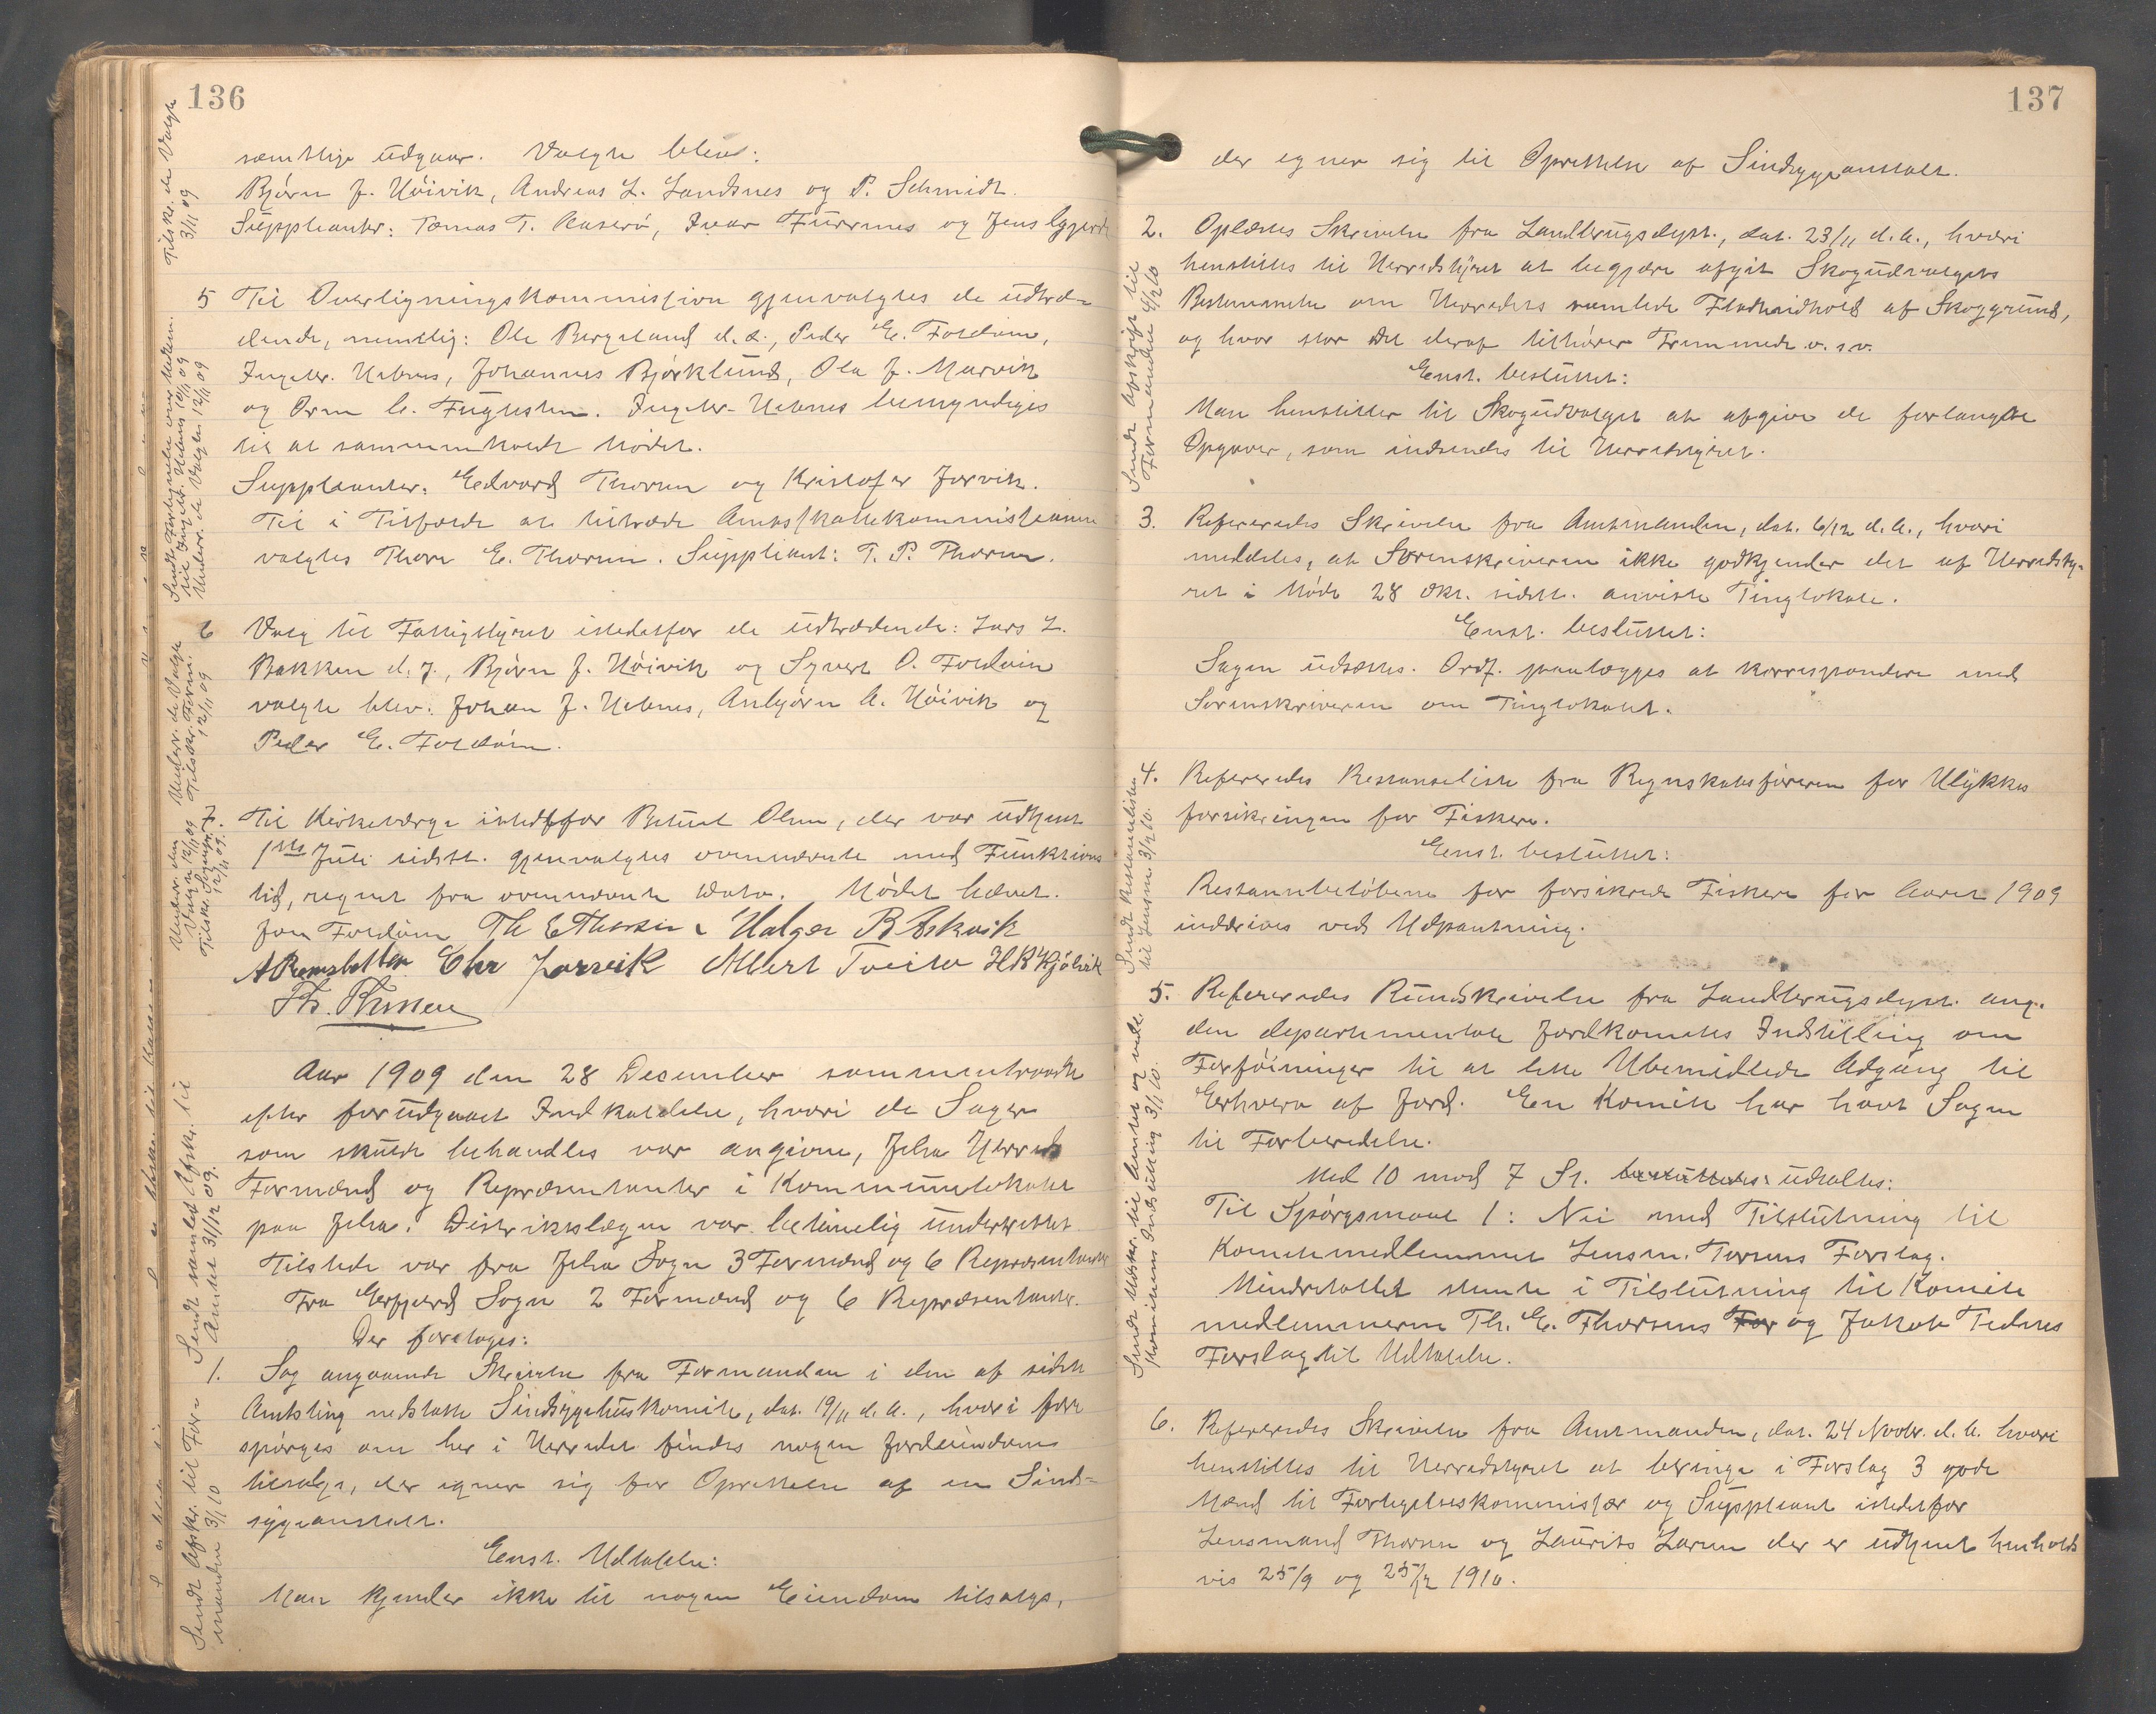 136
samtlige udgaar. Valgte blev:
Bjørn J. Høivik, Andreas L. Landsnes og P. Schmidt.
Suppleanter: Tomas T. Aaserø, Ivar Furrnes og Jens
5 Til Overligningskommission gjenvalgtes de udtræ-
dende, nemlig: Ole Bergeland d.æ., Peder E. Foldøin,
Ingebr. Hebnes, Johannes Bjørklund, Ola J. Marvik
og Orm A. Fuglesten. Ingebr. Hebnes bemyndiges
til at sammenkalde Mødet.
Suppleanter: Edvard Thorsen og Kristofer Jorvik.
Til i Tilfælde at tiltræde Amtsskattekommissionen
valgtes Thore E. Thorsen. Suppleant: T. P. Thorsen.
6 Valg til Fattigstyret istedetfor de udtrædende: Lars L.
Bakken d.y., Bjørn J. Høivik og Syvert O. Foldøin
valgte blev: Johan J. Hebnes, Anbjørn A. Høivik og
Peder E. Foldøin.
7. Til Kirkeværge istedetfor Betuel Olsen, der var udtjent
1ste Juli sidstl. gjenvalgtes ovennævnte med Funktions
tid, regnet fra ovennævnte Dato. Mødet hævet.
Jon Foldøin Th E Thorsen Halger B Eskvik
A Ramsbotten Chr Jorvik Albert Tveita H R Kjølvik
Th. Thorsen
Aar 1909 den 28 December sammentraadte
efter forudgaaet Indkaldelse, hvori de Sager
som skulde behandles var angivne, Jelsa Herreds
Formænd og Repræsentanter i Kommunelokalet
paa Jelsa. Distriktslægen var betimelig underrettet.
Tilstede var fra Jelsa Sogn 3 Formænd og 6 Repræsentanter
Fra Erfjord Sogn 2 Formænd og 6 Repræsentanter.
Der foretoges:
1. Sag angaaende Skrivelse fra Formanden i den af sidste
Amtsting nedsatte Sindsygehuskomite, dat. 19/11 d.A., hvori fore
spørges om her i Herredet findes nogen Jordeiendom
tilsalgs, der egner sig for Oprettelse af en Sind-
sygeanstalt.
Enst. Udtalelse:
Man kjender ikke til nogen Eiendom tilsalgs,
Tilskr. de Valgte
3/11 09
Sendt Fortegnelse over Medlem.
til Ingebr. Hebnes 10/11 09
Underr. de Valgte 12/11 09
Underr. de Valgte
Tilskr. Form.
12/11 09
Underr. den
Valgte 12/11 09
Tilskr. Sognepr.
12/11 09.
Sendt samlet Afskr. til
Amtet 31/12 09.
Sendt Afskr. til For-
manden 3/1 10
137
der egner sig til Oprettelse af Sindsygeanstalt.
2. Oplæstes Skrivelse fra Landbrugsdept., dat. 23/11 d.A., hvori
henstilles til Herredstyret at begjære afgit Skogudvalgets
Bestemmelse om Herredets samlede Fladeindhold af Skoggrund,
og hvor stor Del deraf tilhører Fremmede o.s.v.
Enst. besluttet:
Man henstiller til Skogudvalget at afgive de forlangte
Opgaver, som indsendes til Herredstyret.
3. Refereredes Skrivelse fra Amtmanden, dat. 6/12 d.A., hvori
meddeles, at Sorenskriveren ikke godkjender det af Herredsty-
ret i Møde 28 Okt. sidstl. anviste Tinglokale.
Enst. besluttet:
Sagen udsættes. Ordf. paalægges at korrespondere med
Sorenskriveren om Tinglokalet.
4. Refereredes Restanseliste fra Regnskabsføreren for Ulykkes
forsikringen for Fiskere.
Enst. besluttet:
Restansebeløbene for forsikrede Fiskere for Aaret 1909
inddrives ved Udpantning.
5. Refereredes Rundskrivelse fra Landbrugsdept. ang.
den departementale Jordkomites Indstilling om
Forføininger til at lette Ubemidlede Adgang til
Erhverv af Jord. En Komite har havt Sagen
til Forberedelse.
Med 10 mod 7 St. besluttedes: udtaltes:
Til Spørgsmaal 1: Nei med Tilslutning til
Komitemedlemmet Lensm. Torsens Forslag.
Mindretallet stemte i Tilslutning til Komite
medlemmerne Th. E. Thorsens For og Jakob Tednes
Forslag til Udtalelse.
6. Refereredes Skrivelse fra Amtmanden, dat. 24 Novbr. d.A. hvori
henstilles til Herredstyret at bringe i Forslag 3 gode
Mænd til Forligelseskommissær og Suppleant istedetfor
Lensmand Thorsen og Laurits Larsen der er udtjent henholds
vis 25/9 og 25/12 1910.
Sendt Afskrift til
Formanden 4/2 10
Sendt Restanselisten
til Lensm. 3/2 10.
Komiteens Indstilling 3/1 10.